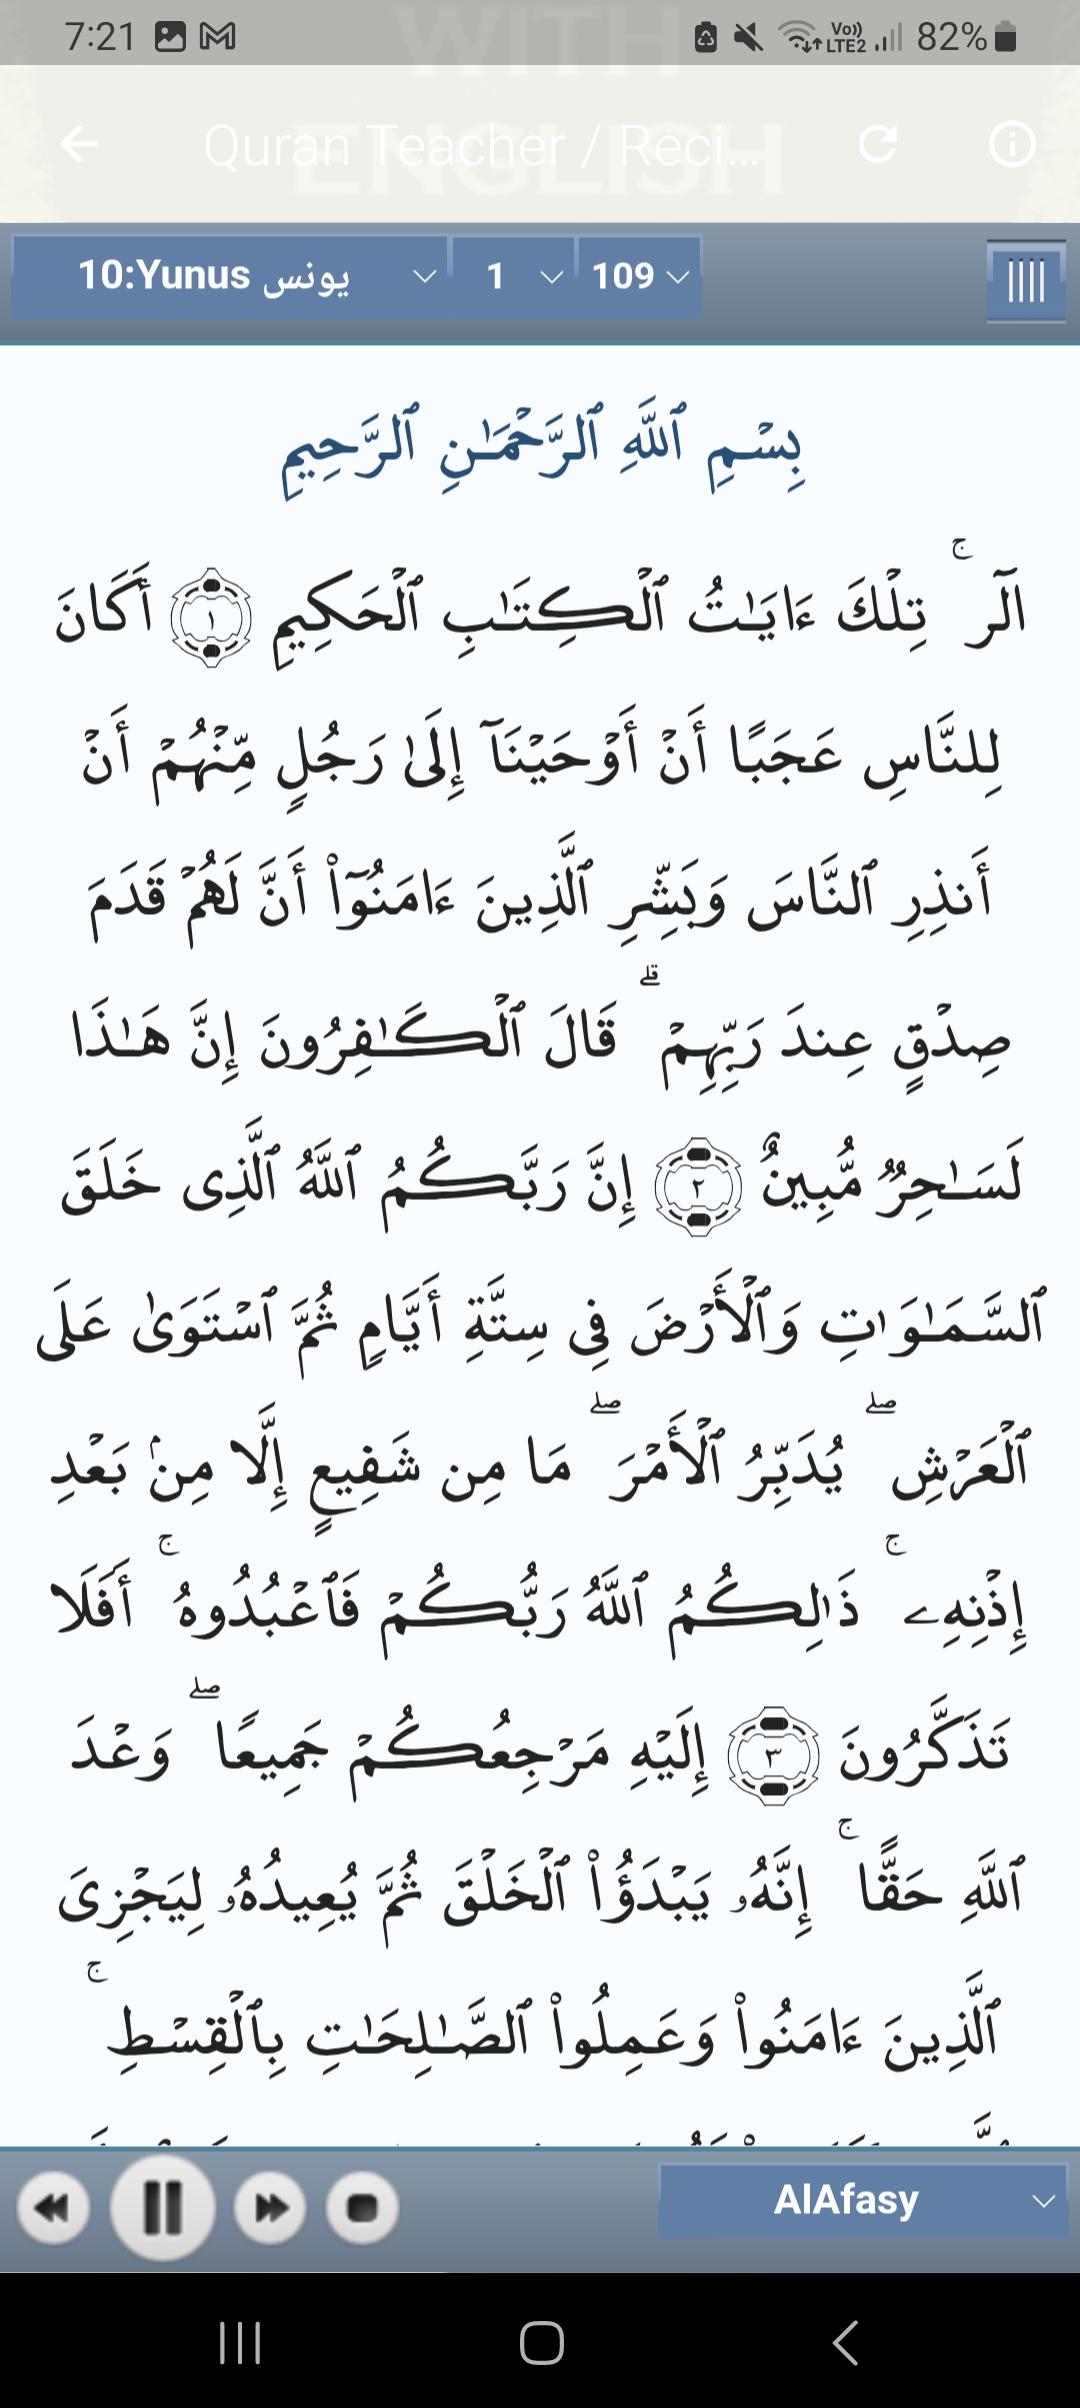 7:21 Vo)) LTE2 82%
WITH
ENGLISH
Quran Teacher / Reci...
10:Yunus يونس 1 109
بِسْمِ ٱللَّهِ ٱلرَّحْمَـٰنِ ٱلرَّحِيمِ
الٓر ۚ تِلْكَ ءَايَـٰتُ ٱلْكِتَـٰبِ ٱلْحَكِيمِ ١ أَكَانَ
لِلنَّاسِ عَجَبًا أَنْ أَوْحَيْنَآ إِلَىٰ رَجُلٍ مِّنْهُمْ أَنْ
أَنذِرِ ٱلنَّاسَ وَبَشِّرِ ٱلَّذِينَ ءَامَنُوٓا۟ أَنَّ لَهُمْ قَدَمَ
صِدْقٍ عِندَ رَبِّهِمْ ۗ قَالَ ٱلْكَـٰفِرُونَ إِنَّ هَـٰذَا
لَسَـٰحِرٌ مُّبِينٌ ٢ إِنَّ رَبَّكُمُ ٱللَّهُ ٱلَّذِى خَلَقَ
ٱلسَّمَـٰوَٰتِ وَٱلْأَرْضَ فِى سِتَّةِ أَيَّامٍ ثُمَّ ٱسْتَوَىٰ عَلَى
ٱلْعَرْشِ ۖ يُدَبِّرُ ٱلْأَمْرَ ۖ مَا مِن شَفِيعٍ إِلَّا مِنۢ بَعْدِ
إِذْنِهِۦ ۚ ذَٰلِكُمُ ٱللَّهُ رَبُّكُمْ فَٱعْبُدُوهُ ۚ أَفَلَا
تَذَكَّرُونَ ٣ إِلَيْهِ مَرْجِعُكُمْ جَمِيعًا ۖ وَعْدَ
ٱللَّهِ حَقًّا ۚ إِنَّهُۥ يَبْدَؤُا۟ ٱلْخَلْقَ ثُمَّ يُعِيدُهُۥ لِيَجْزِىَ
ٱلَّذِينَ ءَامَنُوا۟ وَعَمِلُوا۟ ٱلصَّـٰلِحَـٰتِ بِٱلْقِسْطِ ۚ
AlAfasy